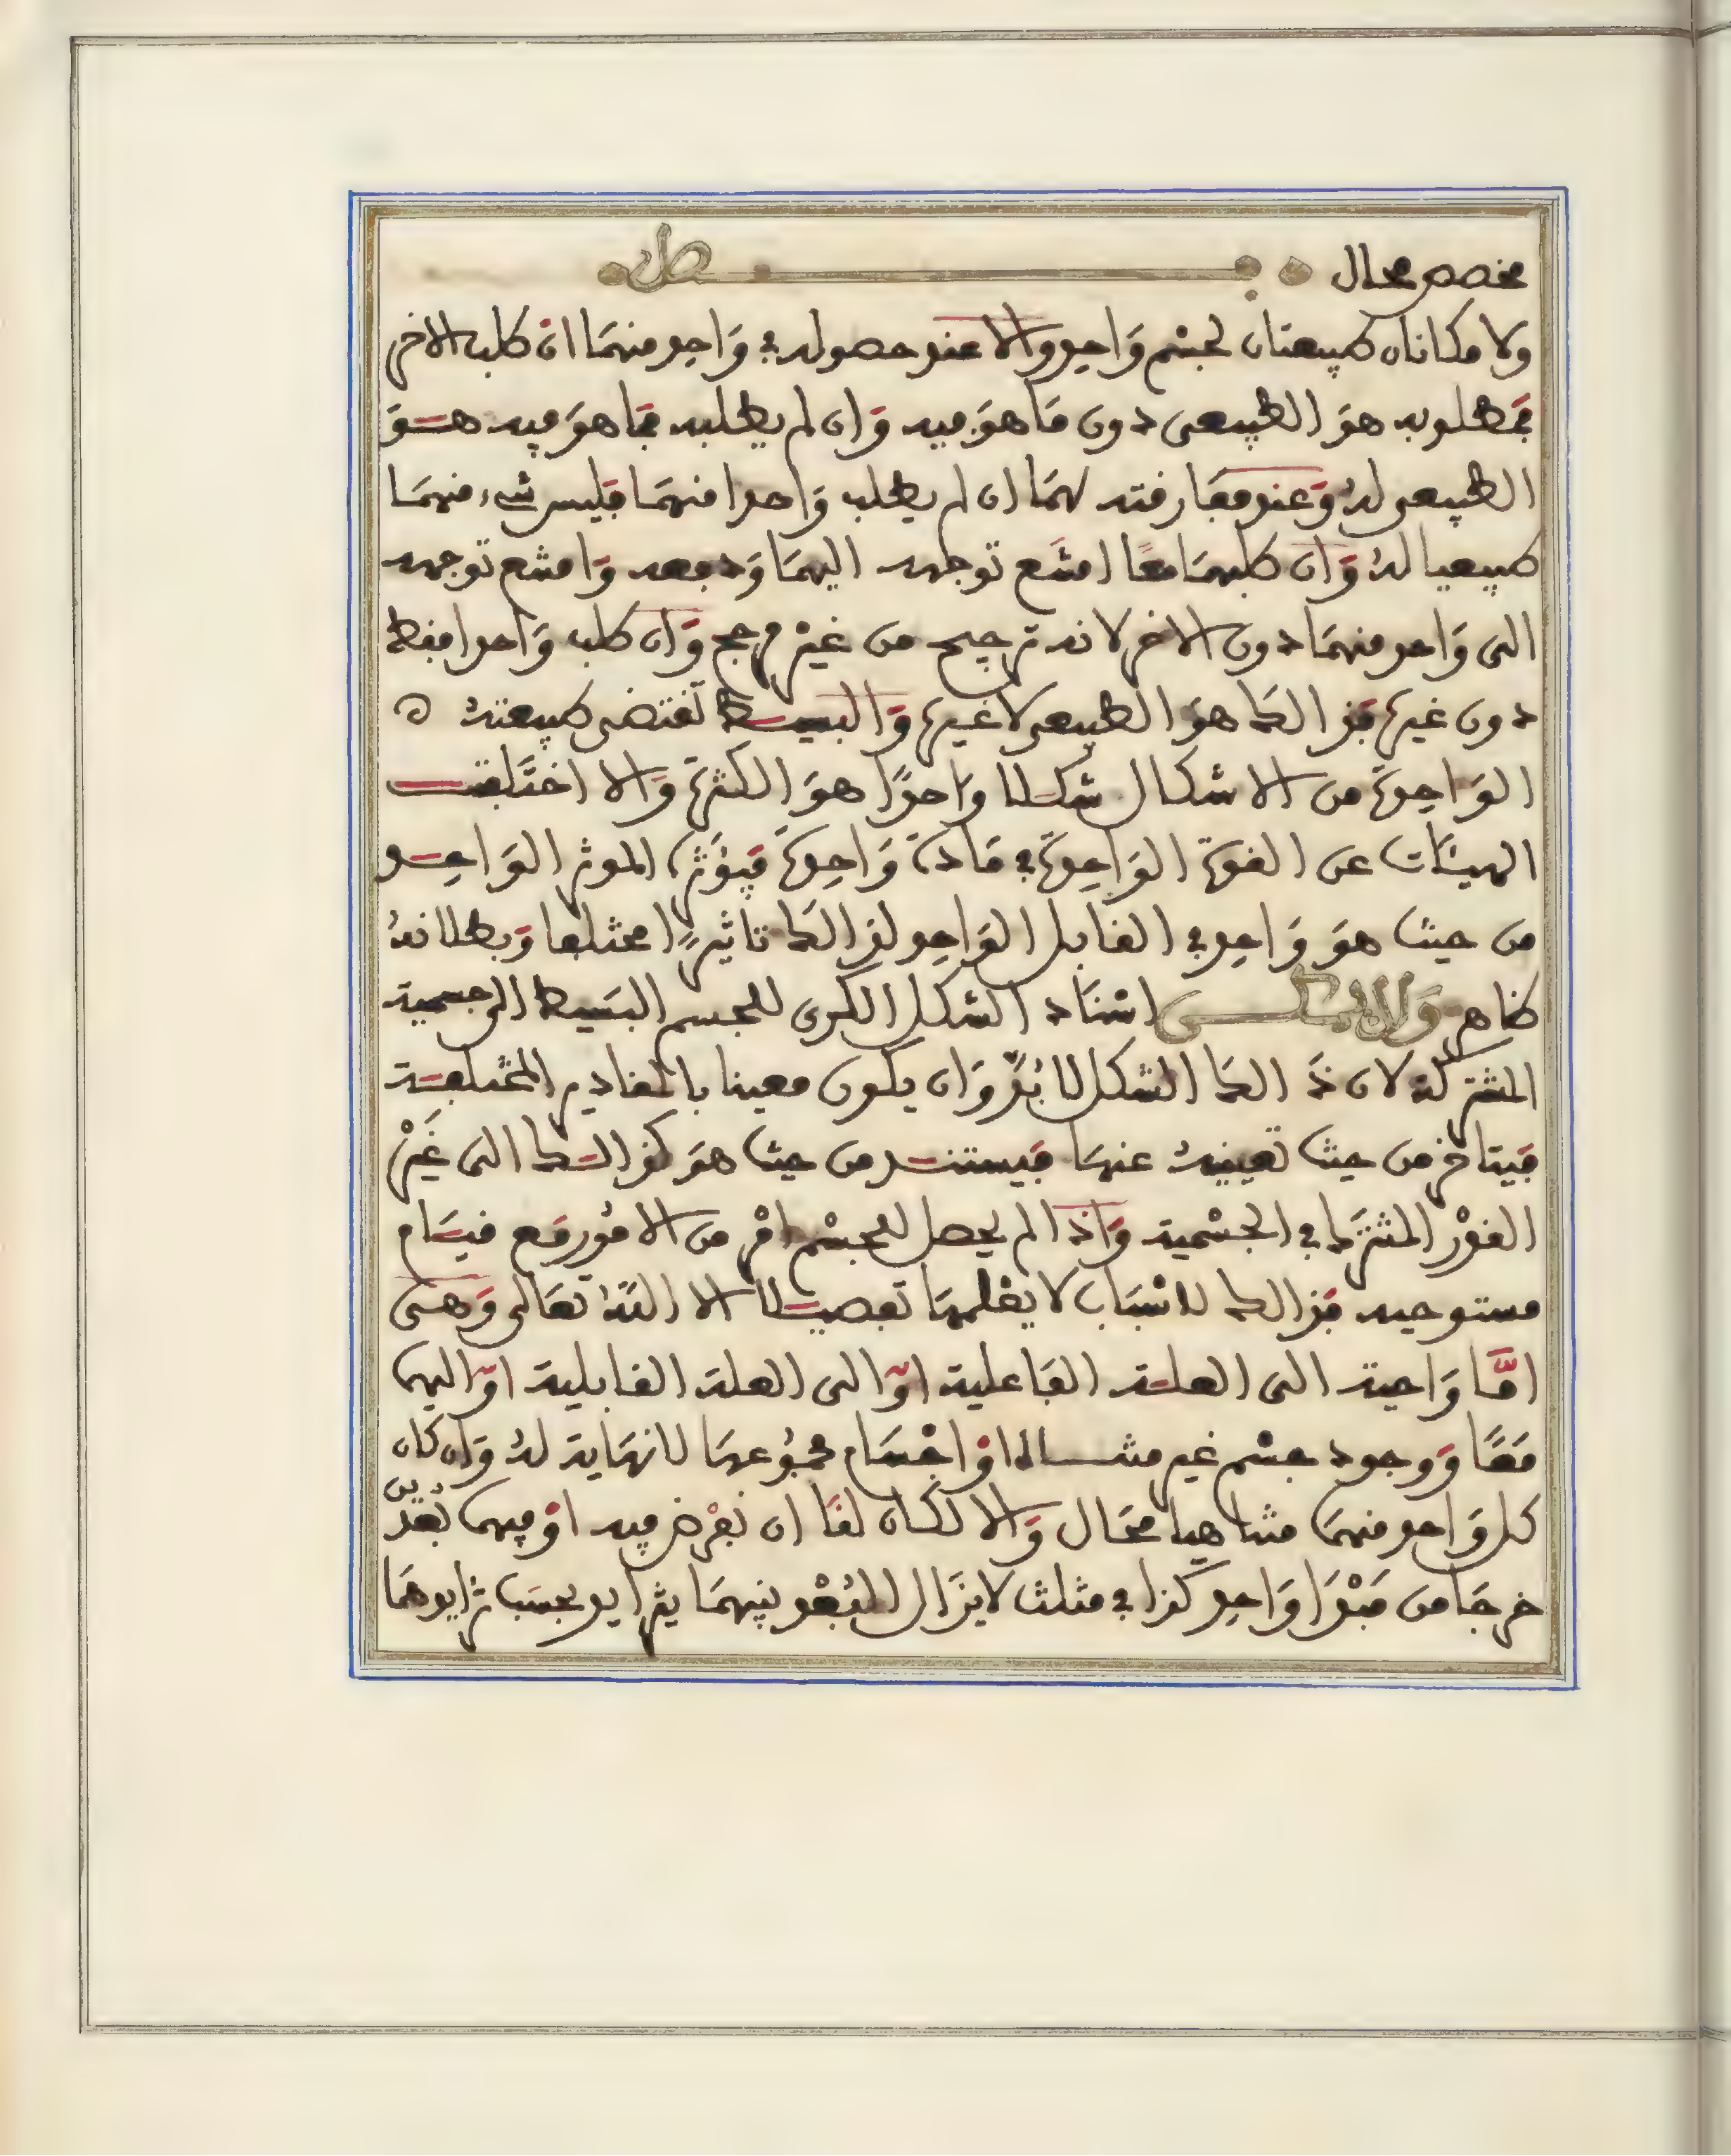 مخصص محال
ولا مكانان طبيعتان لجسم واحد والا عند حصوله في واحد منهما ان طلب الاخر
فمطلوبه هو الطبيعي دون ما هو فيه وان لم يطلبه فما هو فيه هو
الطبيعي له وعند مفارقته لهما ان لم يطلب واحدا منهما فليس شيء منهما
طبيعيا له وان طلبهما معا امتنع توجهه اليهما ودفعه وامتنع توجهه
الى واحد منهما دون الاخر لانه ترجيح من غير مرجح وان طلب واحدا فقط
دون غيره فذالك هو الطبيعي لا غيره والبسيط تقتضي طبيعته
الواحدة من الاشكال شكلا واحدا هو الكرة والا اختلفت
الهيئات عن القوة الواحدة في مادة واحدة فيؤثر الموثر الواحد
من حيث هو واحد في القابل الواحد لذالك تاثيرا مختلفا وبطلانه
ظاهر ولا اسناد الشكل الكري للجسم البسيط الى جسمية
المشتركة لان ذالك الشكل لا بد وان يكون معينا بالمقادير المختلفة
فيتاخر من حيث تعيينه عنها فيستند من حيث هو كذالك الى غير
القدر المشترك في الجسمية واذا لم يحصل للجسم امر من الامور مع قيام
مستوجبه فذالك لاسباب لا يعلمها تفصيلا الا الله تعالى وهي
اما واجبة الى العلة الفاعلية او الى العلة القابلية او اليهما
معا ووجود جسم غير متناه او اجسام مجموعها لا نهاية له وان كان
كل واحد منهما متناهيا محال والا لكان لنا ان نفرض فيه او فيهما بعدين
خرجا من مبدا واحد كذا في مثلث لا يزال البعد بينهما يتزايد بحسب تزايدهما